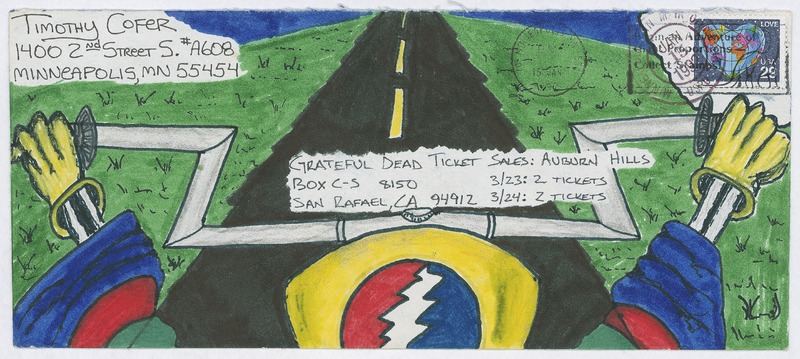 TIMOTHY COFER
1400 2ND STREET S. #A608
MINNEAPOLIS, MN 55454
LOVE
USA
29
an Adventure of
Proportions
Collect Stamps
15 JAN
GRATEFUL DEAD TICKET SALES: AUBURN HILLS
BOX C-S 8150 3/23: 2 TICKETS
SAN RAFAEL, CA 94912 3/24: 2 TICKETS